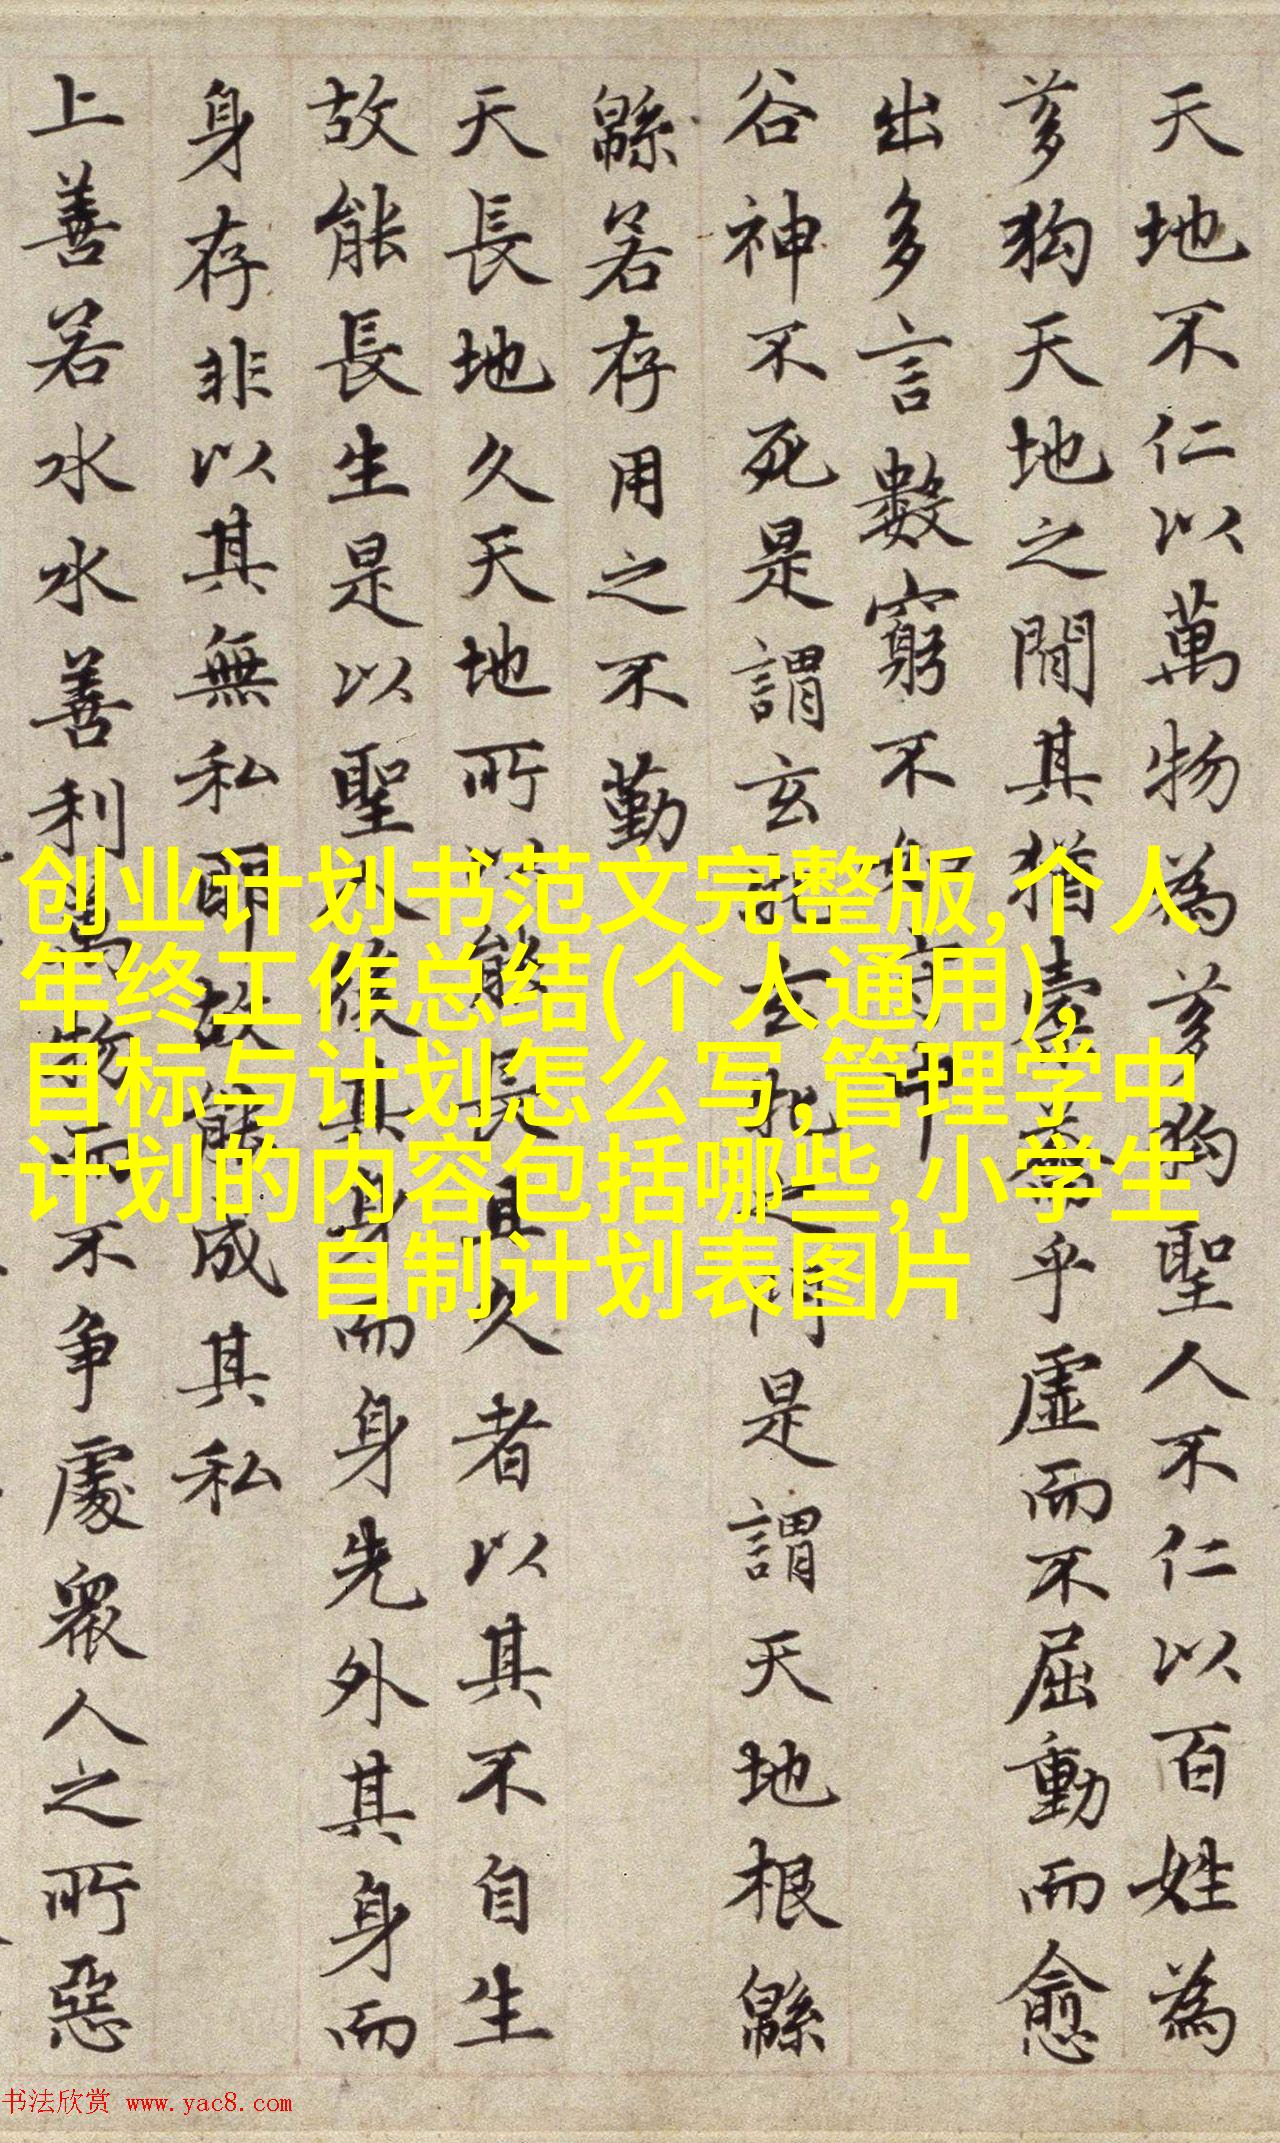 天地不仁以萬物為芻狗聖人不仁以百姓為
芻狗天地之間其猶橐籥乎虛而不屈動而愈
出多言數窮不如守中
谷神不死是謂玄牝玄牝之門是謂天地根緜
緜若存用之不勤
天長地久天地所以能長且久者以其不自生
故能長生是以聖人後其身而身先外其身而
身存非以其無私耶故能成其私
上善若水水善利萬物而不争處衆人之所惡
创业计划书范文完整版,个人
年终工作总结(个人通用),
目标与计划怎么写,管理学中
计划的内容包括哪些,小学生
自制计划表图片
书法欣赏 www.yac8.com